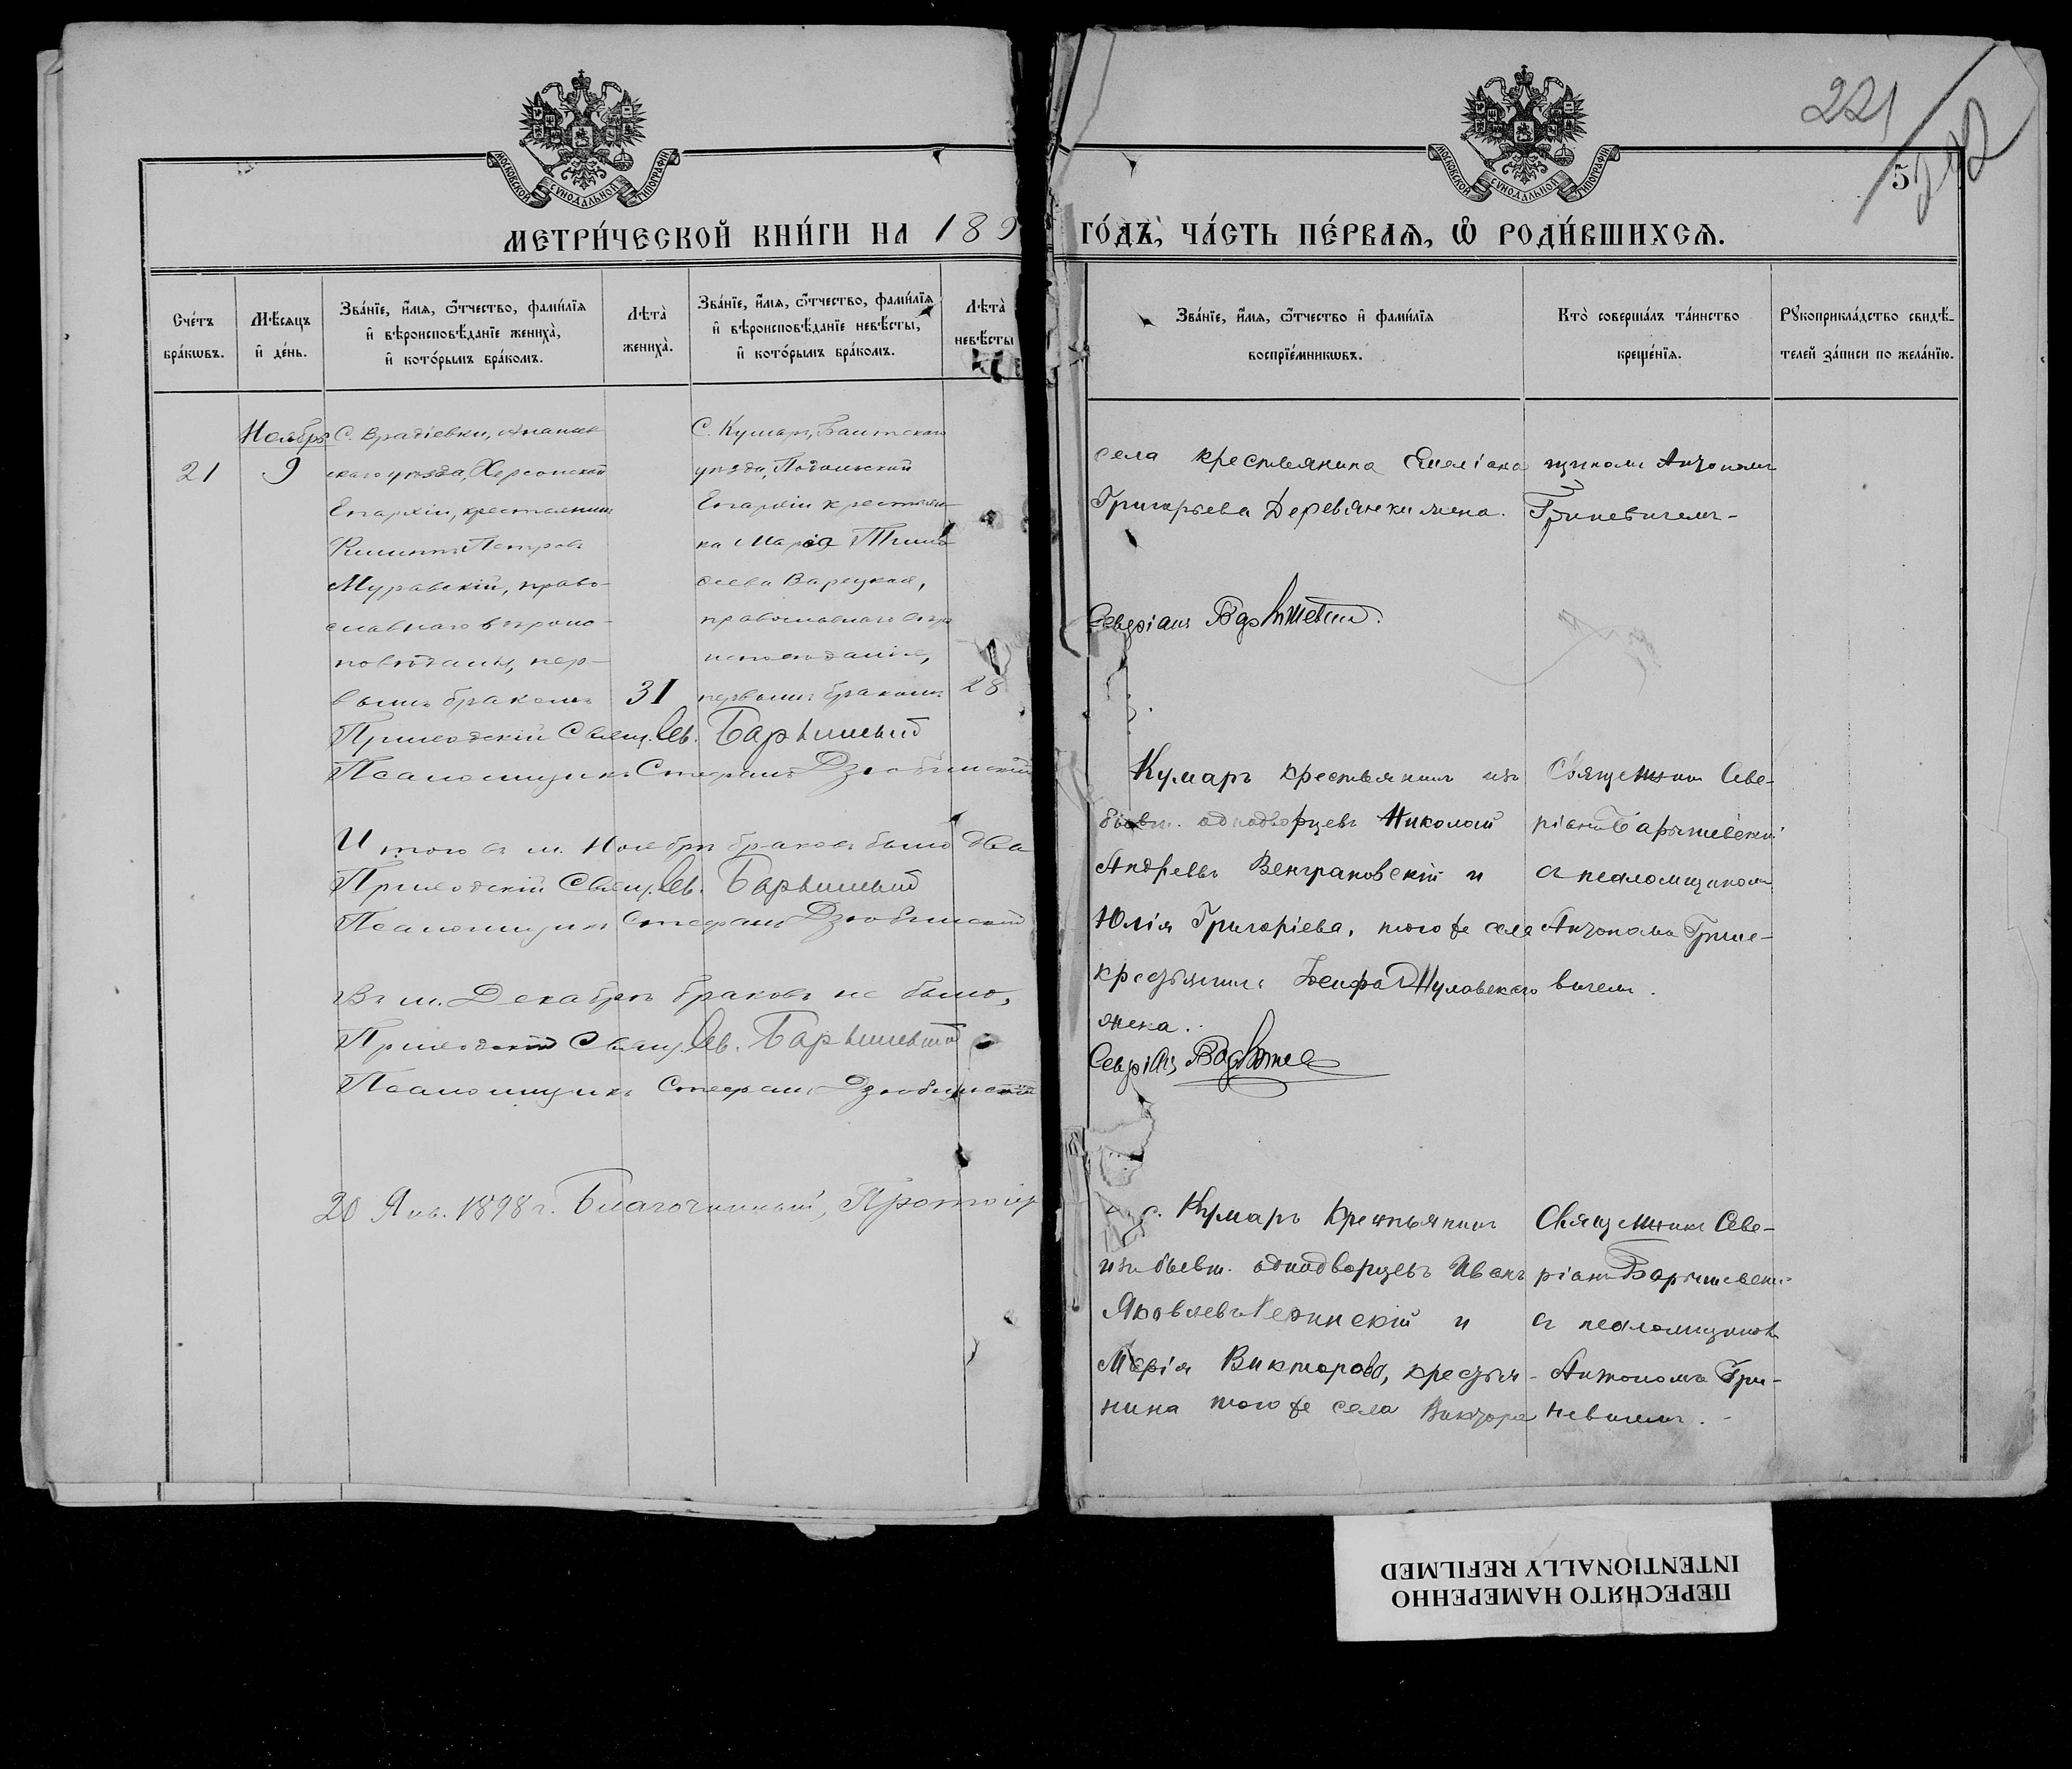 МОСКОВСКОЙ СѴНОДАЛЬНОЙ ТИПОГРАФІИ
МЕТРИ́ЧЕСКОЙ КНИ́ГИ НА 189
Сче́тъ бра́кωвъ.
Мѣ́сяцъ и҆ де́нь.
Зва́нїе, и҆́мѧ, ѻ҆́тчество, фами́лїѧ и҆ вѣроисповѣ́данїе жениха̀, и҆ кото́рымъ бра́комъ.
Лѣ́та̀ жениха̀.
Зва́нїе, и҆́мѧ, ѻ҆́тчество, фами́лїѧ и҆ вѣроисповѣ́данїе невѣ́сты, и҆ кото́рымъ бра́комъ.
Лѣ́та̀ невѣ́сты
Ноябрь
21
9
С. Врадіевки, Ананьев
скаго уѣзда, Херсонской
Епархіи, крестьянинъ
Петровъ
Муравскій, право-
славнаго вѣроис-
повѣданія, пер-
вымъ бракомъ
31
С. Кумаръ, Балтскаго
уѣзда, Подольской
Епархіи крестьян-
ка Марія Тимо
веева Варецкая,
православнаго вѣро
исповѣданія,
первымъ бракомъ
28
Приходскій Свящ. Сев. Барышевскій
Псаломщикъ Стефанъ Дзюбинскій
Итого въ м. Ноябрѣ браковъ было два
Приходскій Свящ. Сев. Барышевскій
Псаломщикъ Стефанъ Дзюбинскій
Въ м. Декабрѣ браковъ не было,
Приходскій Свящ. Сев. Барышевскій
Псаломщикъ Стефанъ Дзюбинскій
20 Янв. 1898 г. Благочинный, Протоіер
221
МОСКОВСКОЙ СѴНОДАЛЬНОЙ ТИПОГРАФІИ
5
ГО́ДЪ, ЧА́СТЬ ПЕ́РВАѦ, Ѽ РОДИ́ВШИХСѦ.
Зва́нїе, и҆́мѧ, ѻ҆́тчество и҆ фами́лїѧ воспрїе́мникωвъ.
Кто̀ соверша́лъ та́инство креще́нїѧ.
Рꙋкоприкла́дство свидѣ́-телей за́писи по жела́нїю.
села крестьянина Емеліана
Григорьева Деревянки жена.
щикомъ Антономъ
Гриневичемъ-
Северіанъ
Кумаръ крестьянинъ изъ
бывш. однодворцевъ Николай
Андреевъ Венграновскій и
Юлія Григоріева, того же села
крестьянина
жена.
Священникъ Севе-
ріанъ Барышевскій
съ псаломщикомъ
Антономъ Грине-
вичемъ.
с. Кумаръ крестьянинъ
изъ бывш. однодворцевъ Иванъ
Яковлевъ
и
Марія Викторова, крестья-
нина того же села Виктора
Священникъ Севе-
ріанъ Барышевскі-
съ псаломщикомъ
Антономъ Гри-
невичемъ. -
ПЕРЕСНЯТО НАМЕРЕННО
INTENTIONALLY REFILMED